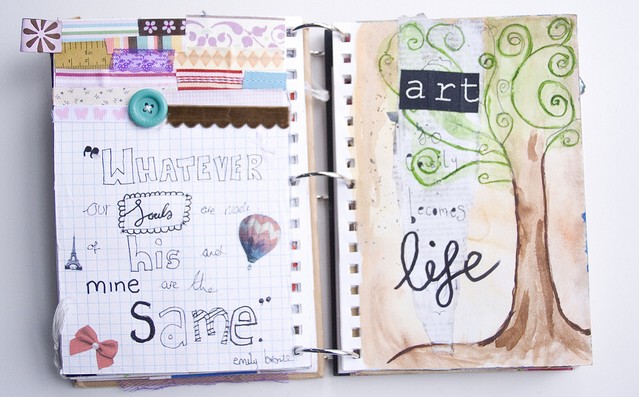 "WHATEVER
our Souls are made
of his and
mine are the
Same."
emily bronte
art
so
easily
becomes
life